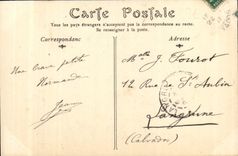 Carte Postale
Tous les pays étrangers n'acceptent pas la correspondance au recto.
Se renseigner à la poste.
Correspondance
Adresse
Une vraie petite
Normande
M. J. Fourot
12 Rue de St Aubin
Langrune
(Calvados)